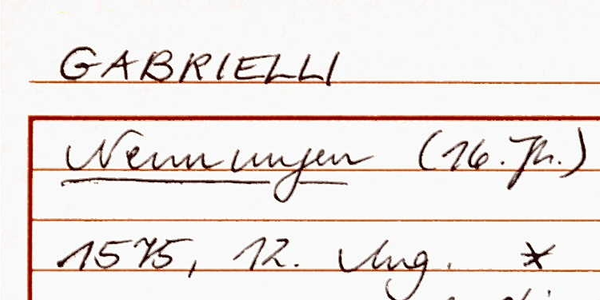 GABRIELLI
Nennungen (16. Jh.)
1575, 12. Aug. *